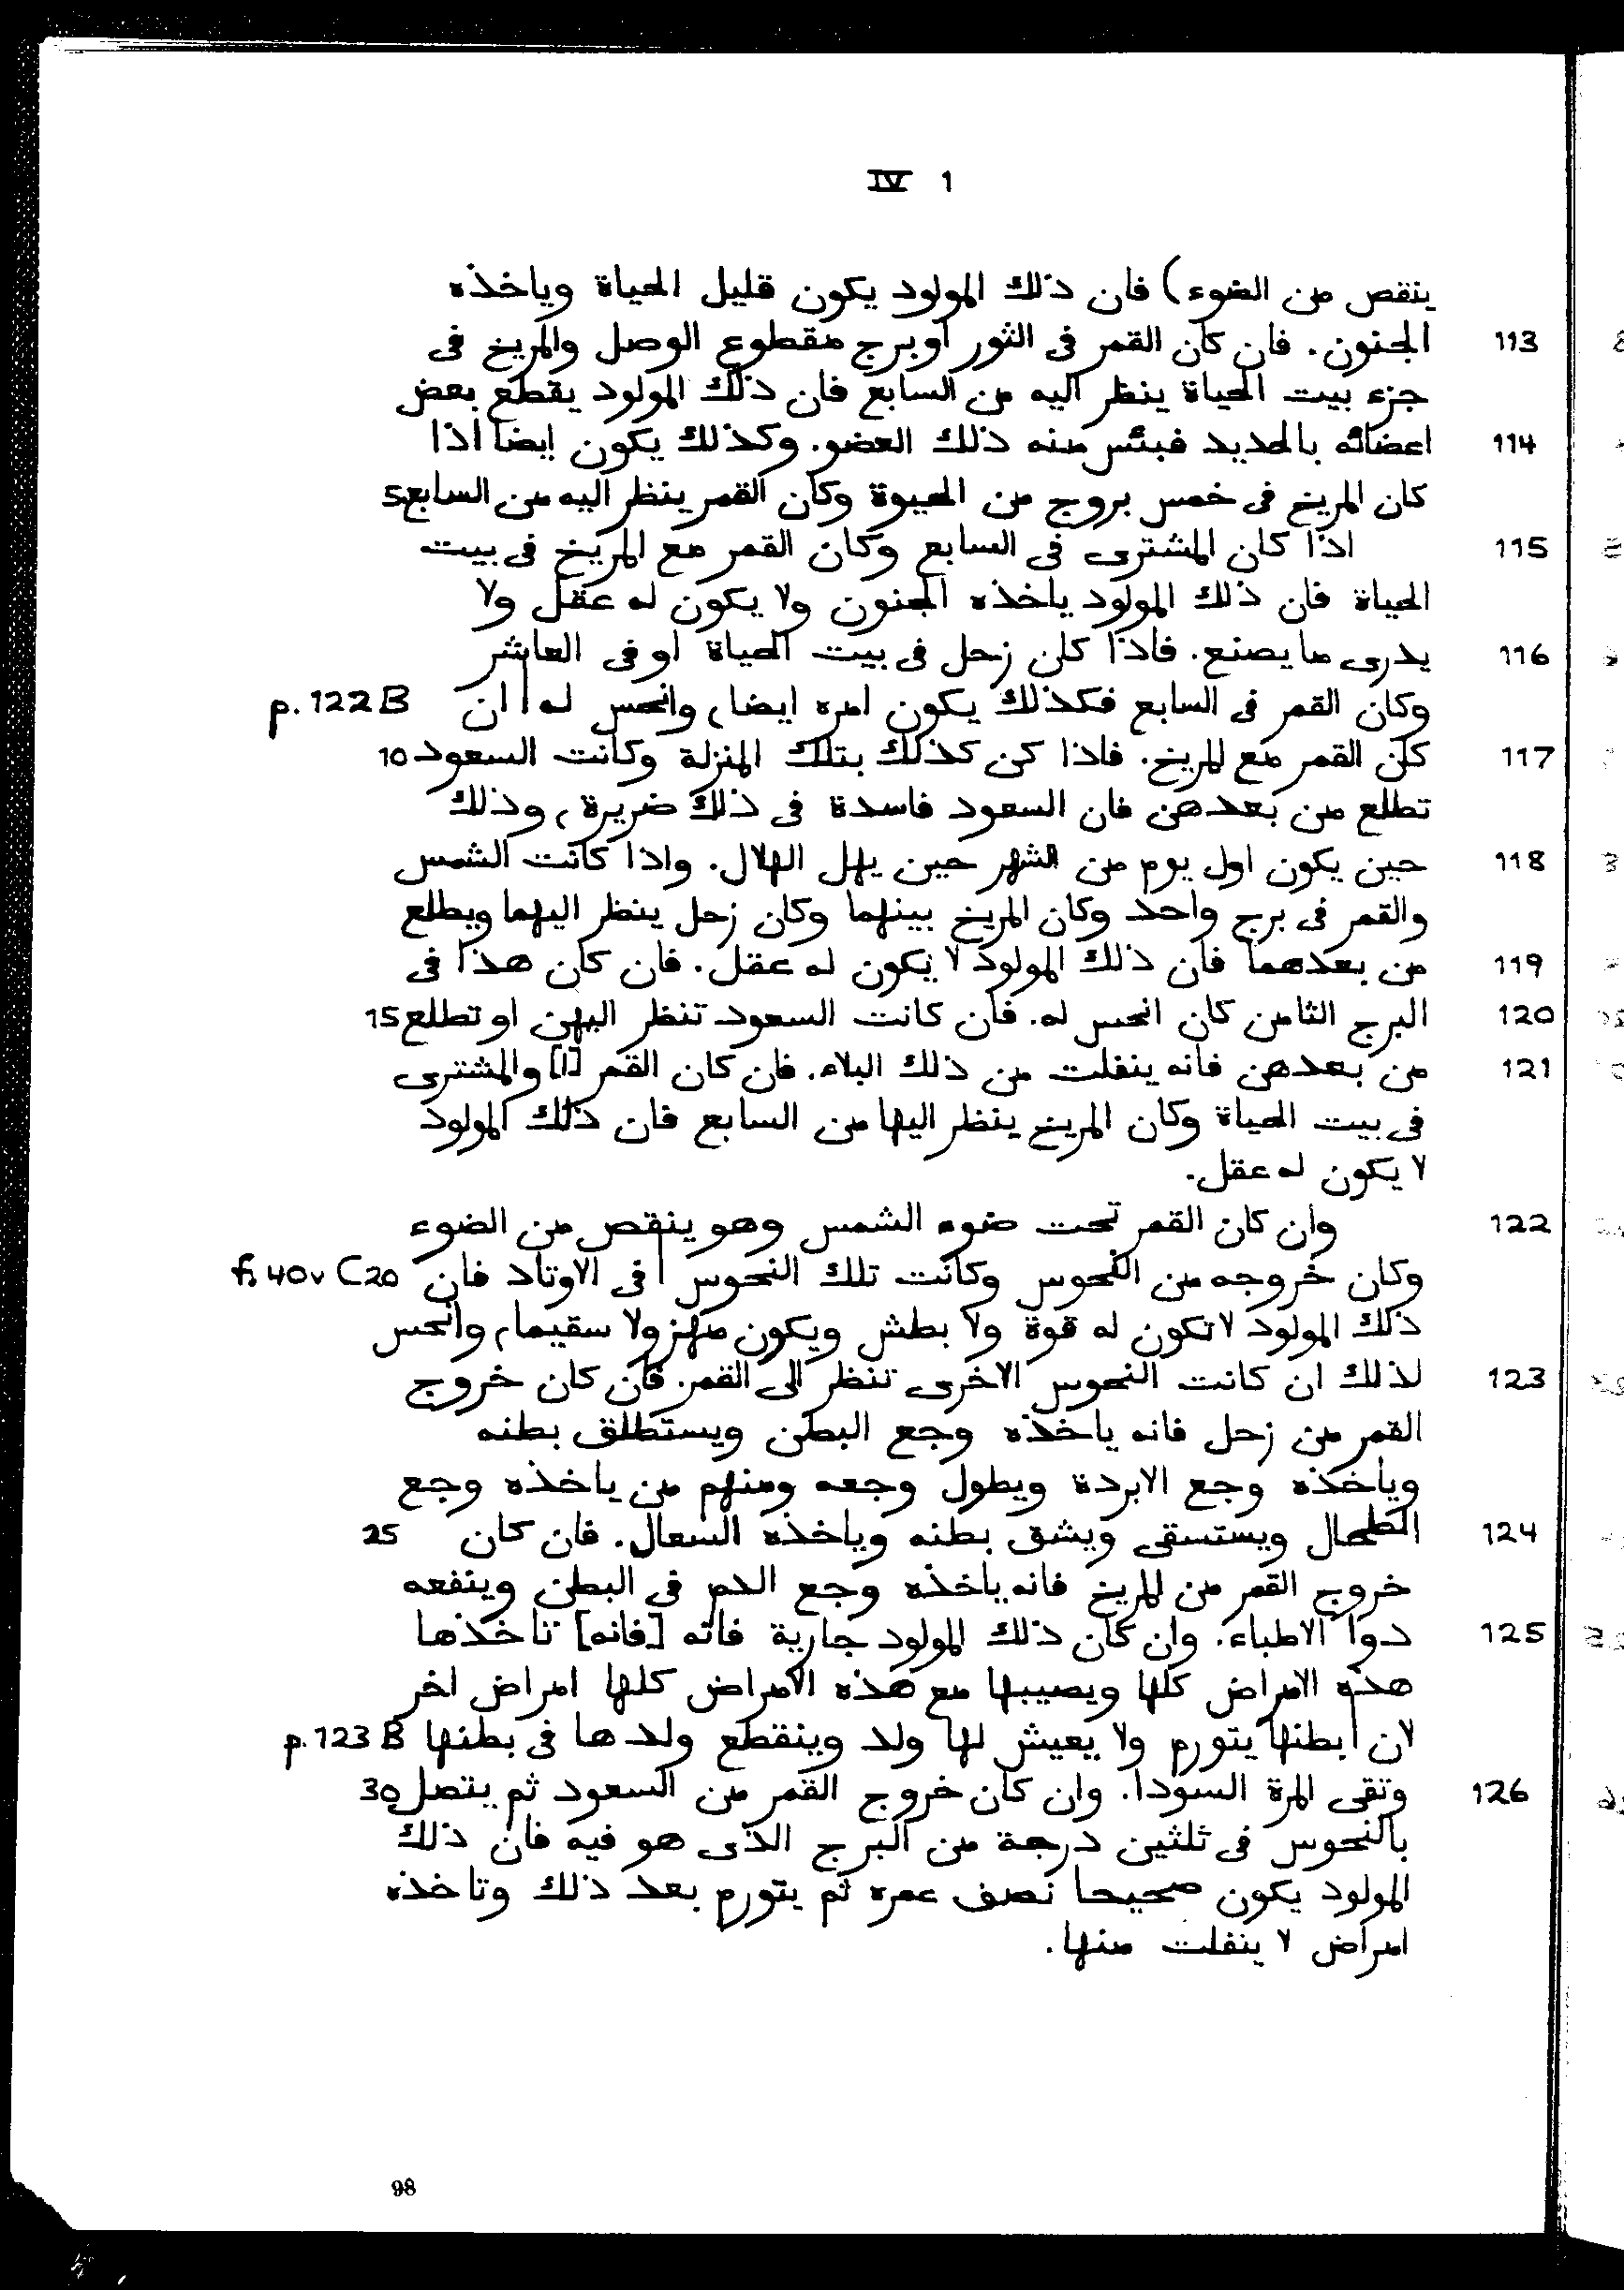 IV 1
ينقص من الضوء) فان ذلك المولود يكون قليل الحياة وياخذه
113 الجنون. فان كان القمر فى الثور او برج مقطوع الوصل والمريخ فى
جزء بيت الحياة ينظر اليه من السابع فان ذلك المولود يقطع بعض
114 اعضائه بالحديد فيئس منه ذلك العضو. وكذلك يكون ايضا اذا
كان المريخ فى خمس بروج من الحيوة وكان القمر ينظر اليه من السابع. 5
115 اذا كان المشترى فى السابع وكان القمر مع المريخ فى بيت
الحياة فان ذلك المولود ياخذه الجنون ولا يكون له عقل ولا
116 يدرى ما يصنع. فاذا كان زحل فى بيت الحياة او فى العاشر
وكان القمر فى السابع فكذلك يكون امره ايضا، وانحس له | ان p. 122 B
117 كان القمر مع المريخ. فاذا كن كذلك بتلك المنزلة وكانت السعود 10
تطلع من بعدهن فان السعود فاسدة فى ذلك ضريرة، وذلك
118 حين يكون اول يوم من الشهر حين يهل الهلال. واذا كانت الشمس
والقمر فى برج واحد وكان المريخ بينهما وكان زحل ينظر اليهما ويطلع
119 من بعدهما فان ذلك المولود لا يكون له عقل. فان كان هذا فى
120 البرج الثامن كان انحس له. فان كانت السعود تنظر اليهن او تطلع 15
121 من بعدهن فانه ينفلت من ذلك البلاء. فان كان القمر [ا] والمشترى
فى بيت الحياة وكان المريخ ينظر اليها من السابع فان ذلك المولود
لا يكون له عقل.
122 وان كان القمر تحت ضوء الشمس وهو ينقص من الضوء
وكان خروجه من النحوس وكانت تلك النحوس | فى الاوتاد فان f. 40v C 20
ذلك المولود لا تكون له قوة ولا بطش ويكون مهزولا سقيما، وانحس
123 لذلك ان كانت النحوس الاخرى تنظر الى القمر. فان كان خروج
القمر من زحل فانه ياخذه وجع البطن ويستطلق بطنه
وياخذه وجع الابردة ويطول وجعه ومنهم من ياخذه وجع
124 الطحال ويستسقى ويشق بطنه وياخذه السعال. فان كان 25
خروج القمر من المريخ فانه ياخذه وجع الدم فى البطن وينفعه
125 دوا الاطباء. وان كان ذلك المولود جارية فانه [فانه] تاخذها
هذه الامراض كلها ويصيبها مع هذه الامراض كلها امراض اخر
لان | بطنها يتورم ولا يعيش لها ولد وينقطع ولدها فى بطنها p. 123 B
126 وتقى المرة السودا. وان كان خروج القمر من السعود ثم يتصل 30
بالنحوس فى ثلثين درجة من البرج الذى هو فيه فان ذلك
المولود يكون صحيحا نصف عمره ثم يتورم بعد ذلك وتاخذه
امراض لا ينفلت منها.
98